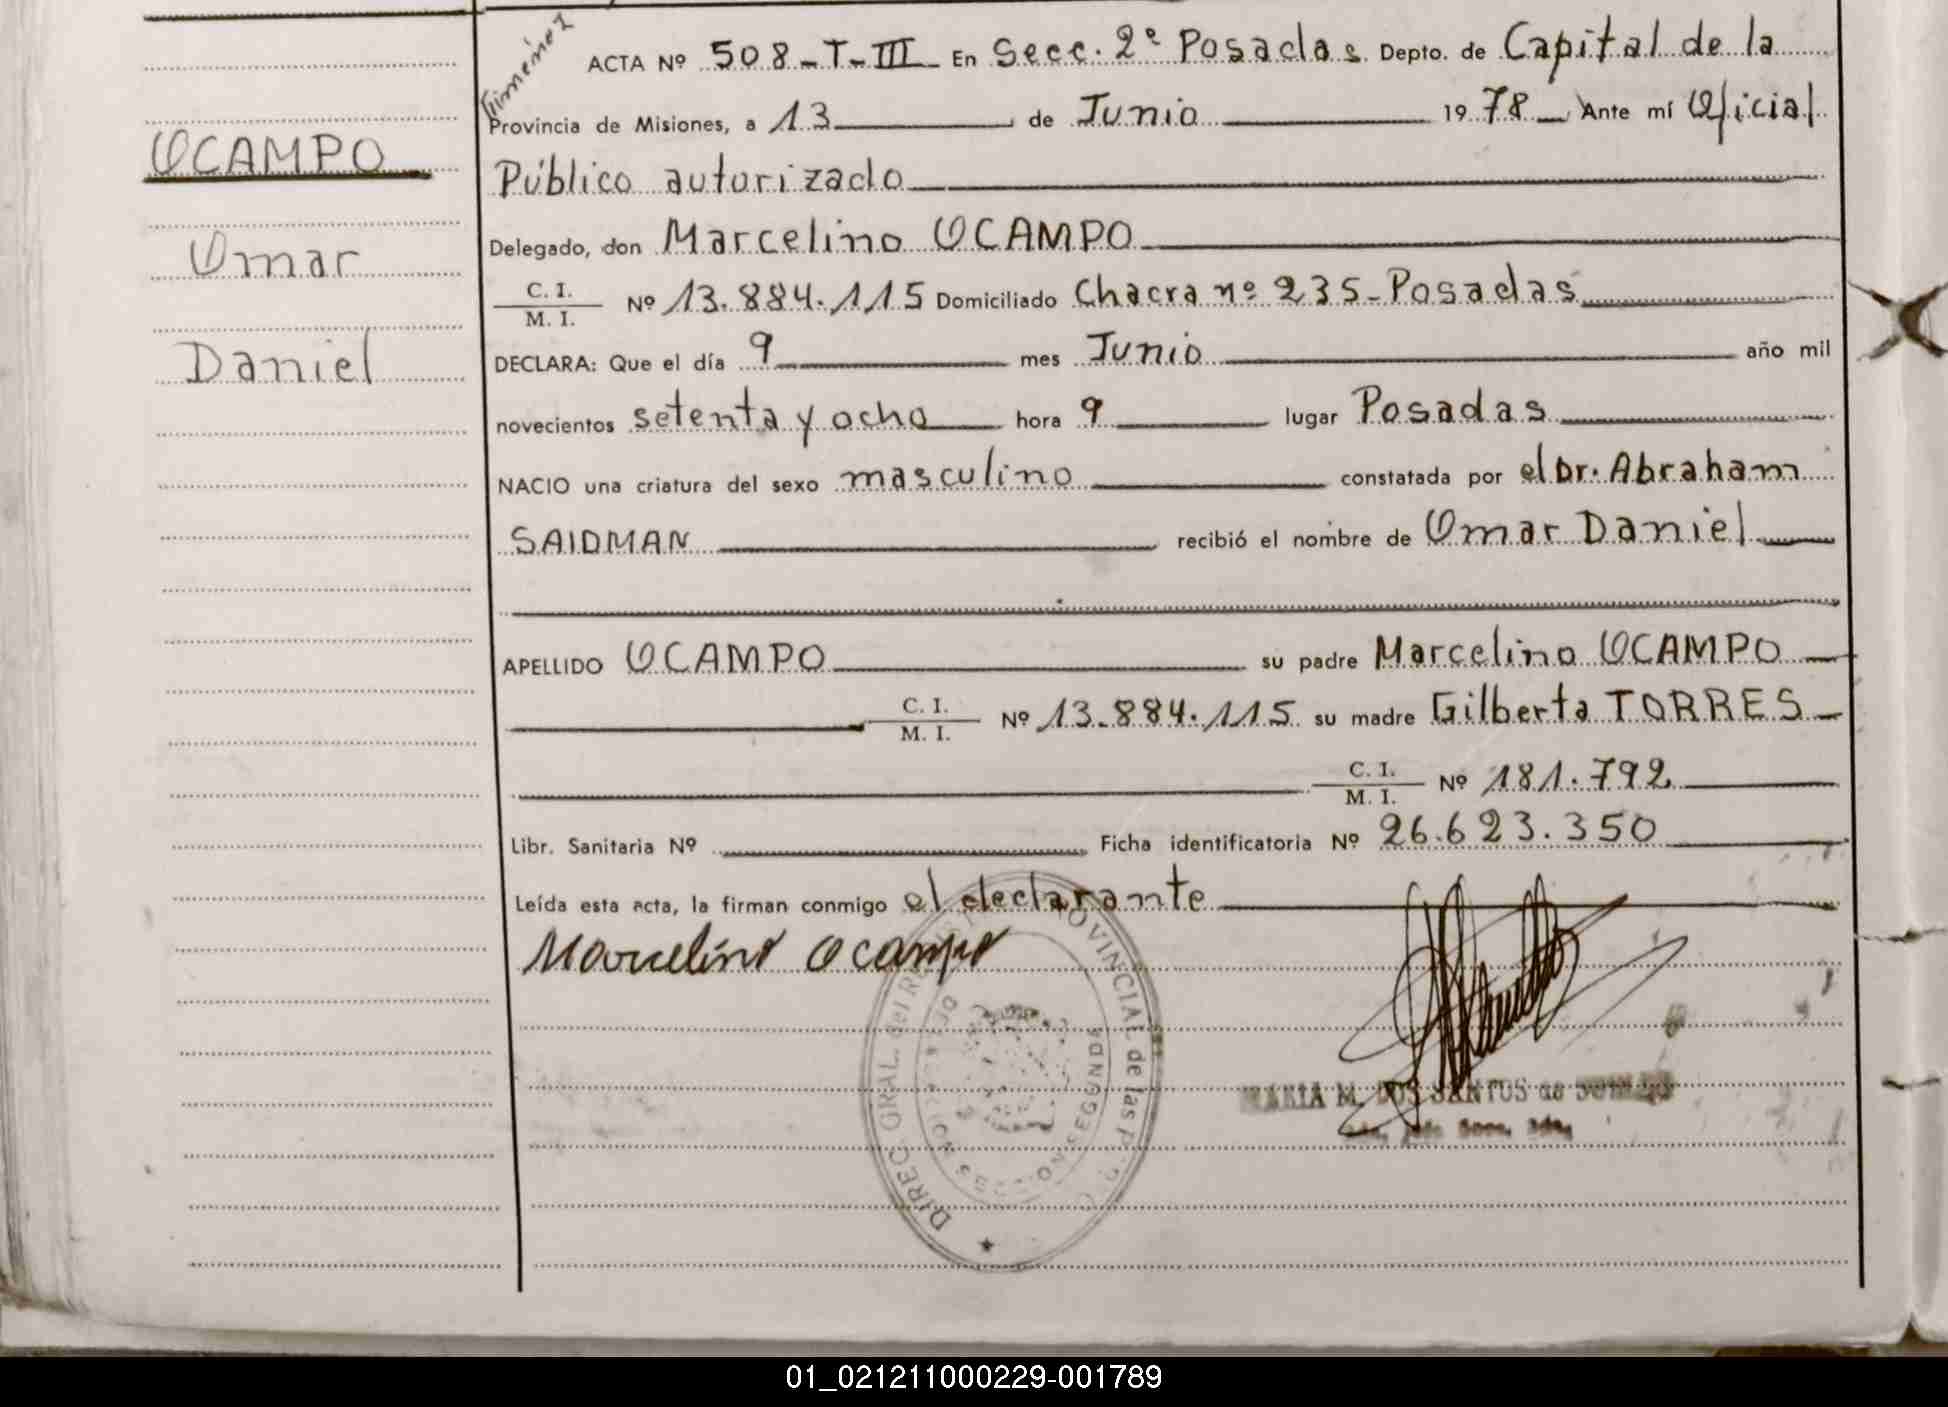 Gimenez
ACTA Nº 508-T-III En Secc. 2º Posadas Depto. de Capital de la
Provincia de Misiones, a 13 de Junio 1978 Ante mí Oficial
OCAMPO
Público autorizado
Omar
Delegado, don Marcelino OCAMPO
C. I.
M. I. Nº 13.884.115 Domiciliado Chacra nº 235-Posadas
Daniel
DECLARA: Que el día 9 mes Junio año mil
novecientos setenta y ocho hora 9 lugar Posadas
NACIO una criatura del sexo masculino constatada por el Dr. Abraham
SAIDMAN recibió el nombre de Omar Daniel
APELLIDO OCAMPO su padre Marcelino OCAMPO
C. I.
M. I. Nº 13.884.115 su madre Gilberta TORRES
C. I.
M. I. Nº 181.792
Libr. Sanitaria Nº Ficha identificatoria Nº 26.623.350
Leída esta acta, la firman conmigo el declarante
Marcelino Ocampo
DIREC. GRAL. del PROVINCIAL de las P
SEGUNDA
MARIA M. DOS SANTOS de
Secc. 2da.
01_021211000229-001789